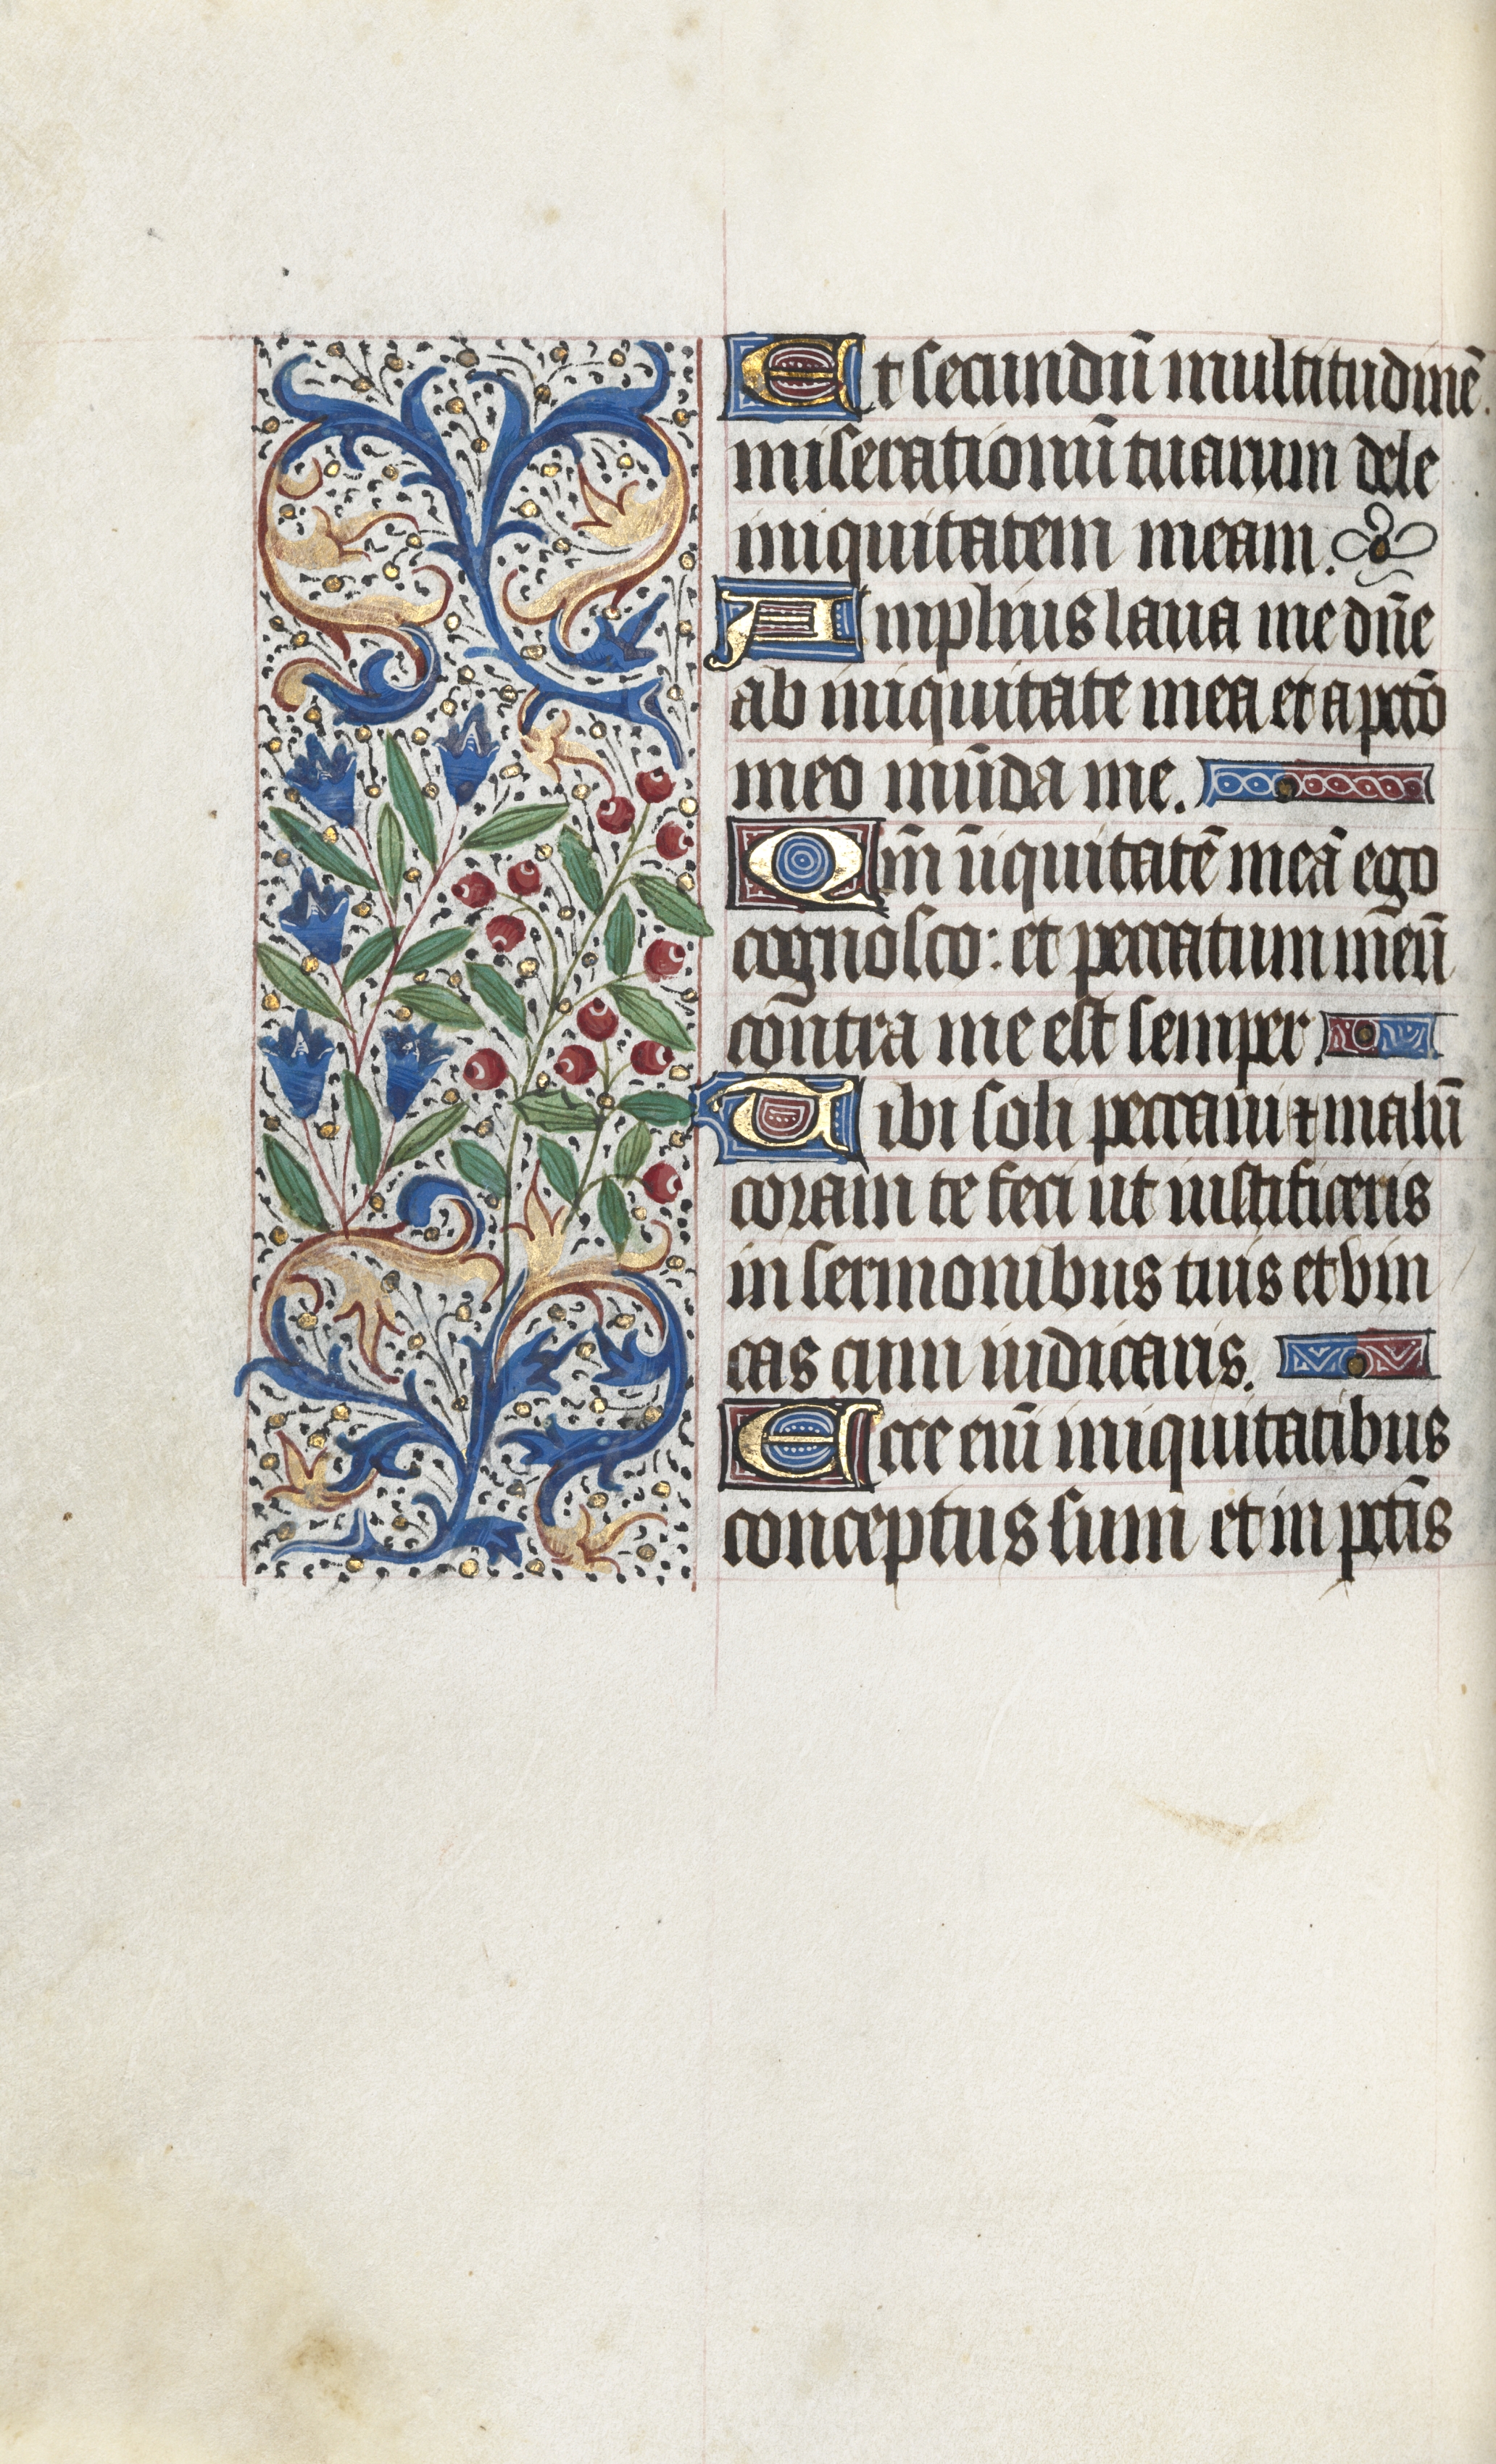 Et secundū multitudinē
miserationū tuarum dele
iniquitatem meam.
Amplius laua me dn̄e
ab iniquitate mea et a pctō
meo mūda me.
Qm̄ īiquitatē meā ego
cognosco: et peccatum meū
contra me est semper
Tibi soli peccaui ⁊ malū
coram te feci ut iustificeris
in sermonibus tuis et vin
cas cum iudicaris.
Ecce eni̅ iniquitatibus
conceptus sum et in pctīs